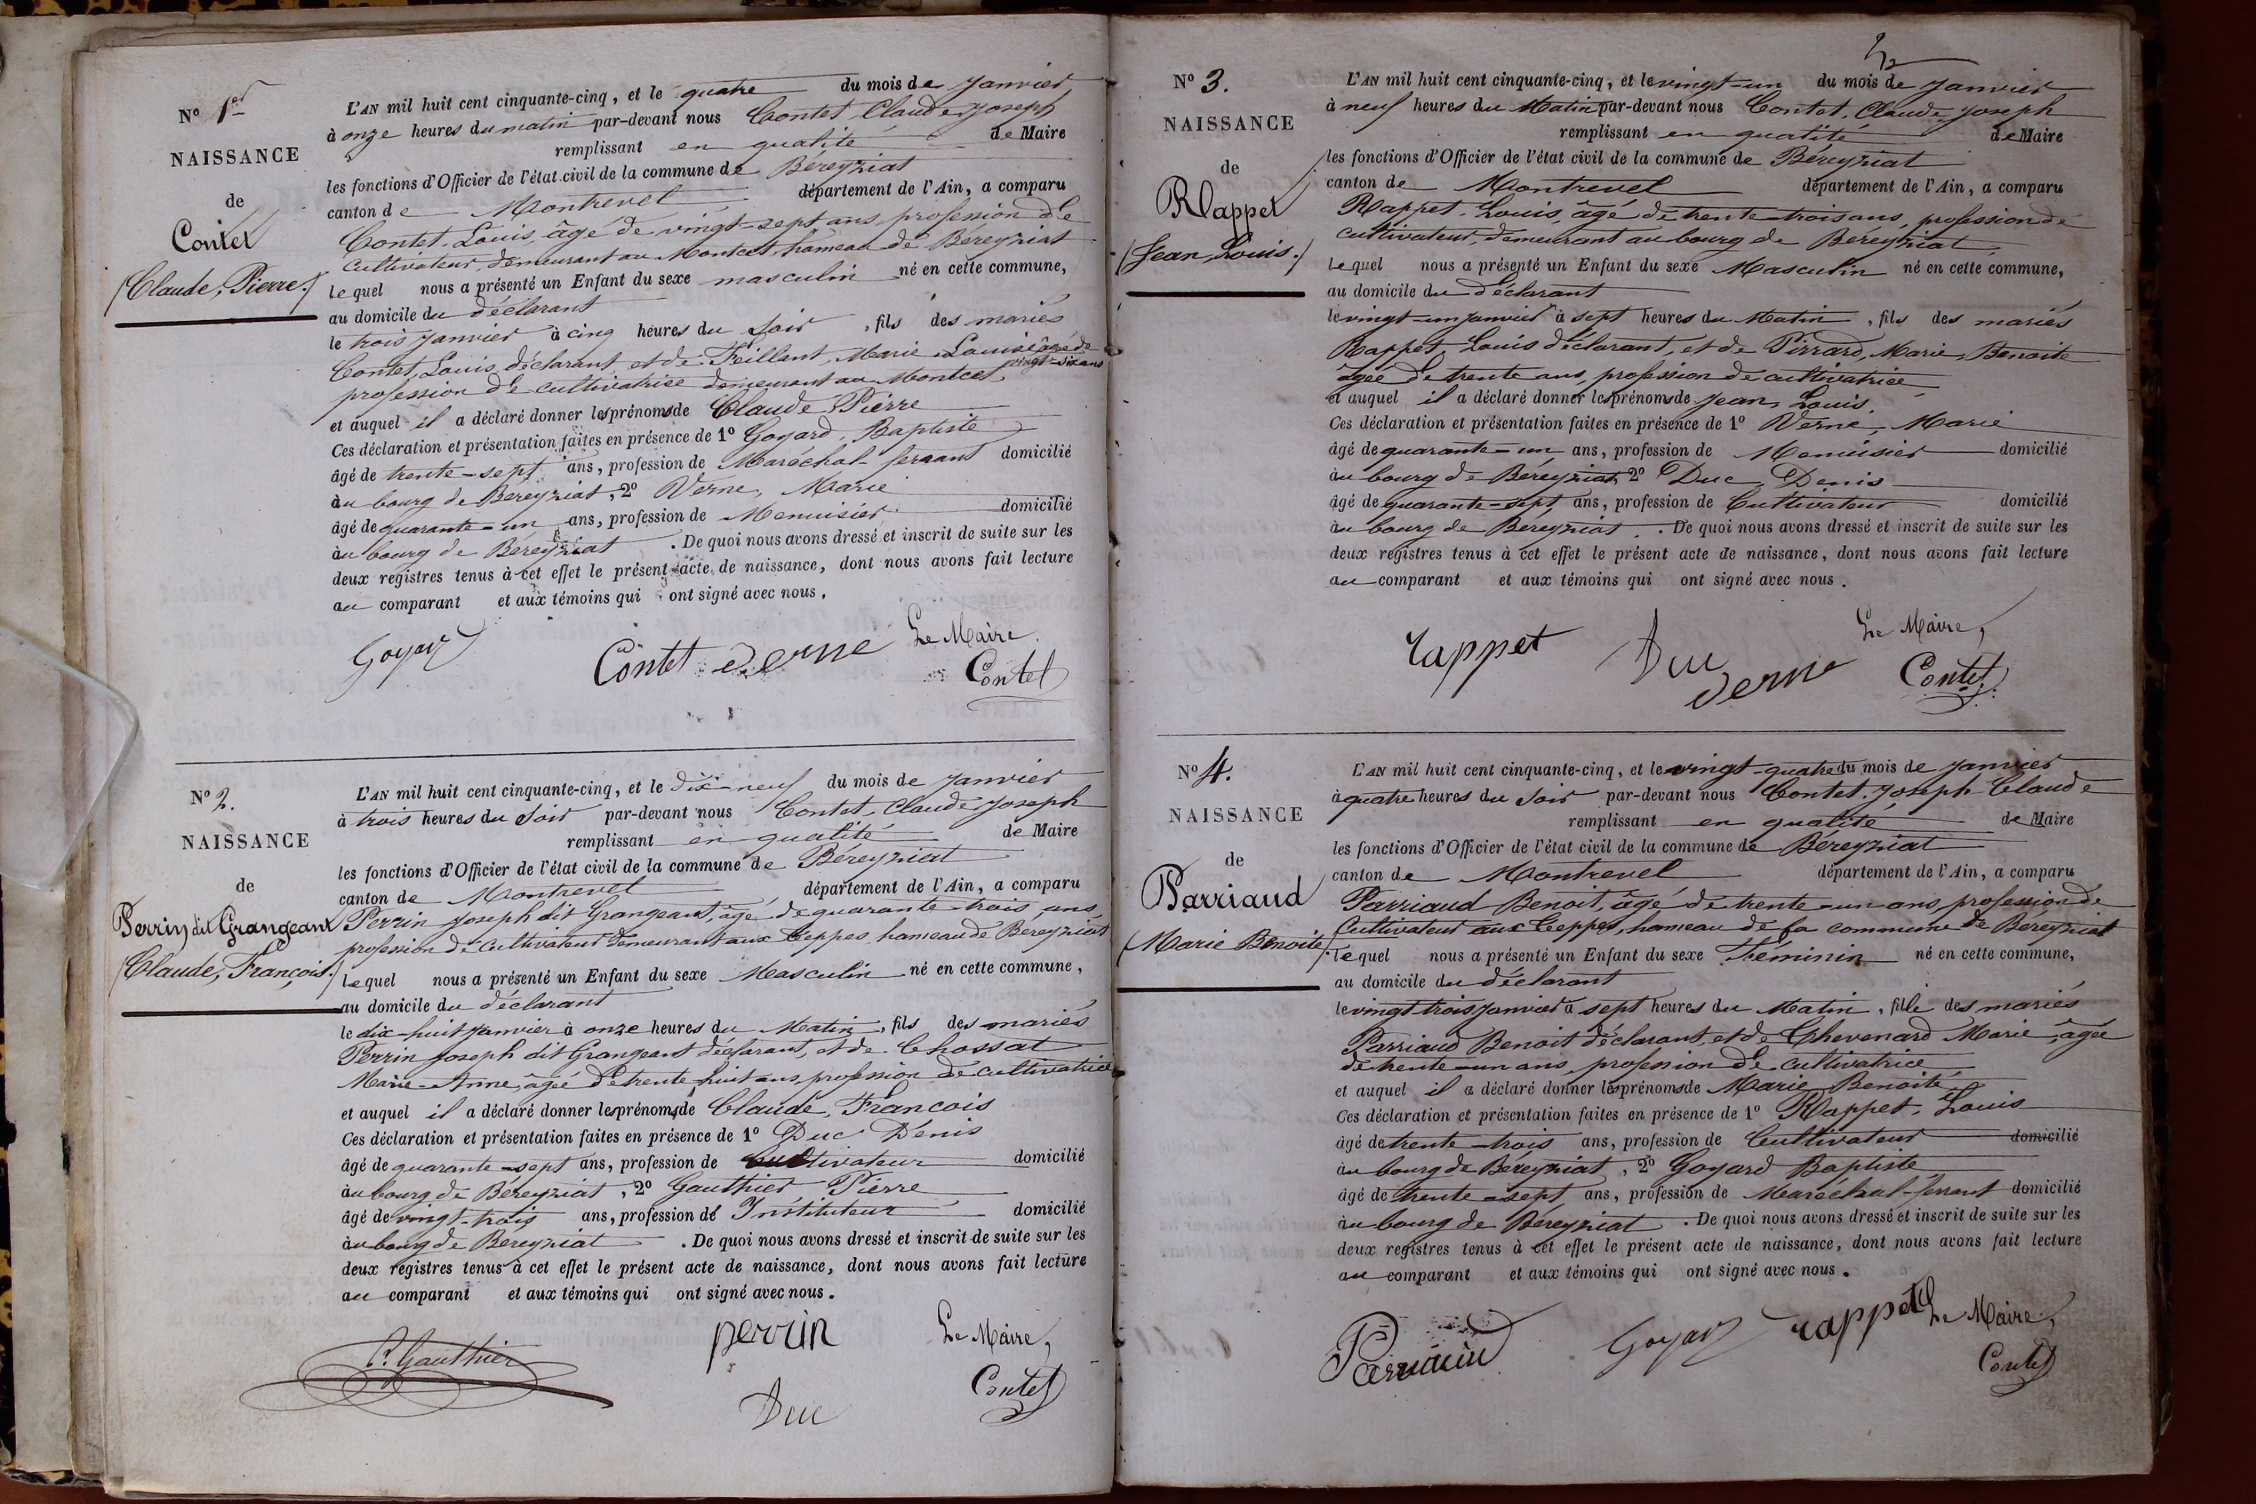 N° 1er
NAISSANCE
de
Contet
(Claude, Pierre.)
L'AN mil huit cent cinquante-cinq, et le quatre du mois de janvier
à onze heures du matin par-devant nous Contet, Claude, Joseph
remplissant en qualité de Maire
les fonctions d'Officier de l'état civil de la commune de Béreyziat
canton de Montrevel département de l'Ain, a comparu
Contet, Louis, âgé de vingt-sept ans, profession de
cultivateur, demeurant au Montcet, hameau de Béreyziat
Lequel nous a présenté un Enfant du sexe masculin né en cette commune,
au domicile du déclarant
le trois janvier à cinq heures du soir, fils des mariés
Contet, Louis, déclarant, et de Feillent, Marie, Louise, âgée de vingt-six ans
profession de cultivatrice demeurant au Montcet
et auquel il a déclaré donner les prénoms de Claude, Pierre
Ces déclaration et présentation faites en présence de 1° Goyard, Baptiste
âgé de trente-sept ans, profession de Maréchal-ferrant domicilié
au bourg de Béreyziat, 2° Verne, Marie
âgé de quarante-un ans, profession de Menuisier domicilié
au bourg de Béreyziat. De quoi nous avons dressé et inscrit de suite sur les
deux registres tenus à cet effet le présent acte de naissance, dont nous avons fait lecture
au comparant et aux témoins qui ont signé avec nous.
Goyard Contet Verne Le Maire,
Contet
N° 2.
NAISSANCE
de
Perrin dit Grangeant
(Claude, François.)
L'AN mil huit cent cinquante-cinq, et le dix-neuf du mois de janvier
à trois heures du soir par-devant nous Contet, Claude Joseph
remplissant en qualité de Maire
les fonctions d'Officier de l'état civil de la commune de Béreyziat
canton de Montrevel département de l'Ain, a comparu
Perrin Joseph dit Grangeant, âgé de quarante-trois ans,
profession de cultivateur demeurant aux Teppes, hameau de Béreyziat
Lequel nous a présenté un Enfant du sexe Masculin né en cette commune,
au domicile du déclarant
le dix-huit janvier à onze heures du Matin, fils des mariés
Perrin Joseph dit Grangeant déclarant, et de Chossat
Marie-Anne, âgée de trente-huit ans, profession de cultivatrice
et auquel il a déclaré donner les prénoms de Claude, Francois
Ces déclaration et présentation faites en présence de 1° Duc Denis
âgé de quarante-sept ans, profession de Cultivateur domicilié
au bourg de Béreyziat, 2° Gauthier Pierre
âgé de vingt-trois ans, profession de Instituteur domicilié
au bourg de Béreyziat. De quoi nous avons dressé et inscrit de suite sur les
deux registres tenus à cet effet le présent acte de naissance, dont nous avons fait lecture
au comparant et aux témoins qui ont signé avec nous.
P. Gauthier perrin Le Maire,
Duc Contet
N° 3.
NAISSANCE
de
Rappet
(Jean, Louis.)
L'AN mil huit cent cinquante-cinq, et le vingt-un du mois de janvier
à neuf heures du Matin par-devant nous Contet, Claude Joseph
remplissant en qualité de Maire
les fonctions d'Officier de l'état civil de la commune de Béreyziat
canton de Montrevel département de l'Ain, a comparu
Rappet, Louis, âgé de trente-trois ans, profession de
cultivateur, demeurant au bourg de Béreyziat
Lequel nous a présenté un Enfant du sexe Masculin né en cette commune,
au domicile du déclarant
le vingt-un janvier à sept heures du Matin, fils des mariés
Rappet, Louis déclarant, et de Pirrard, Marie, Benoite
âgée de trente ans, profession de cultivatrice
et auquel il a déclaré donner les prénoms de Jean, Louis.
Ces déclaration et présentation faites en présence de 1° Verne, Marie
âgé de quarante-un ans, profession de Menuisier domicilié
au bourg de Béreyziat 2° Duc, Denis
âgé de quarante-sept ans, profession de Cultivateur domicilié
au bourg de Béreyziat. De quoi nous avons dressé et inscrit de suite sur les
deux registres tenus à cet effet le présent acte de naissance, dont nous avons fait lecture
au comparant et aux témoins qui ont signé avec nous.
rappet Duc Le Maire,
Verne Contet
N° 4.
NAISSANCE
de
Parriaud
(Marie Benoite)
L'AN mil huit cent cinquante-cinq, et le vingt-quatre du mois de janvier
à quatre heures du soir par-devant nous Contet, Joseph Claude
remplissant en qualité de Maire
les fonctions d'Officier de l'état civil de la commune de Béreyziat
canton de Montrevel département de l'Ain, a comparu
Parriaud Benoit, âgé de trente-un ans, profession de
Cultivateur aux Teppes, hameau de la commune de Béreyziat
Lequel nous a présenté un Enfant du sexe Féminin né en cette commune,
au domicile du déclarant
le vingt trois janvier à sept heures du Matin, fille des mariés
Parriaud Benoit déclarant, et de Chevenard Marie, âgée
de trente-un ans, profession de cultivatrice
et auquel il a déclaré donner les prénoms de Marie Benoite
Ces déclaration et présentation faites en présence de 1° Rappet, Louis
âgé de trente-trois ans, profession de Cultivateur domicilié
au bourg de Béreyziat, 2° Goyard Baptiste
âgé de trente-sept ans, profession de Maréchal-ferrant domicilié
au bourg de Béreyziat. De quoi nous avons dressé et inscrit de suite sur les
deux registres tenus à cet effet le présent acte de naissance, dont nous avons fait lecture
au comparant et aux témoins qui ont signé avec nous.
Parriaud Goyard rappet Le Maire,
Contet